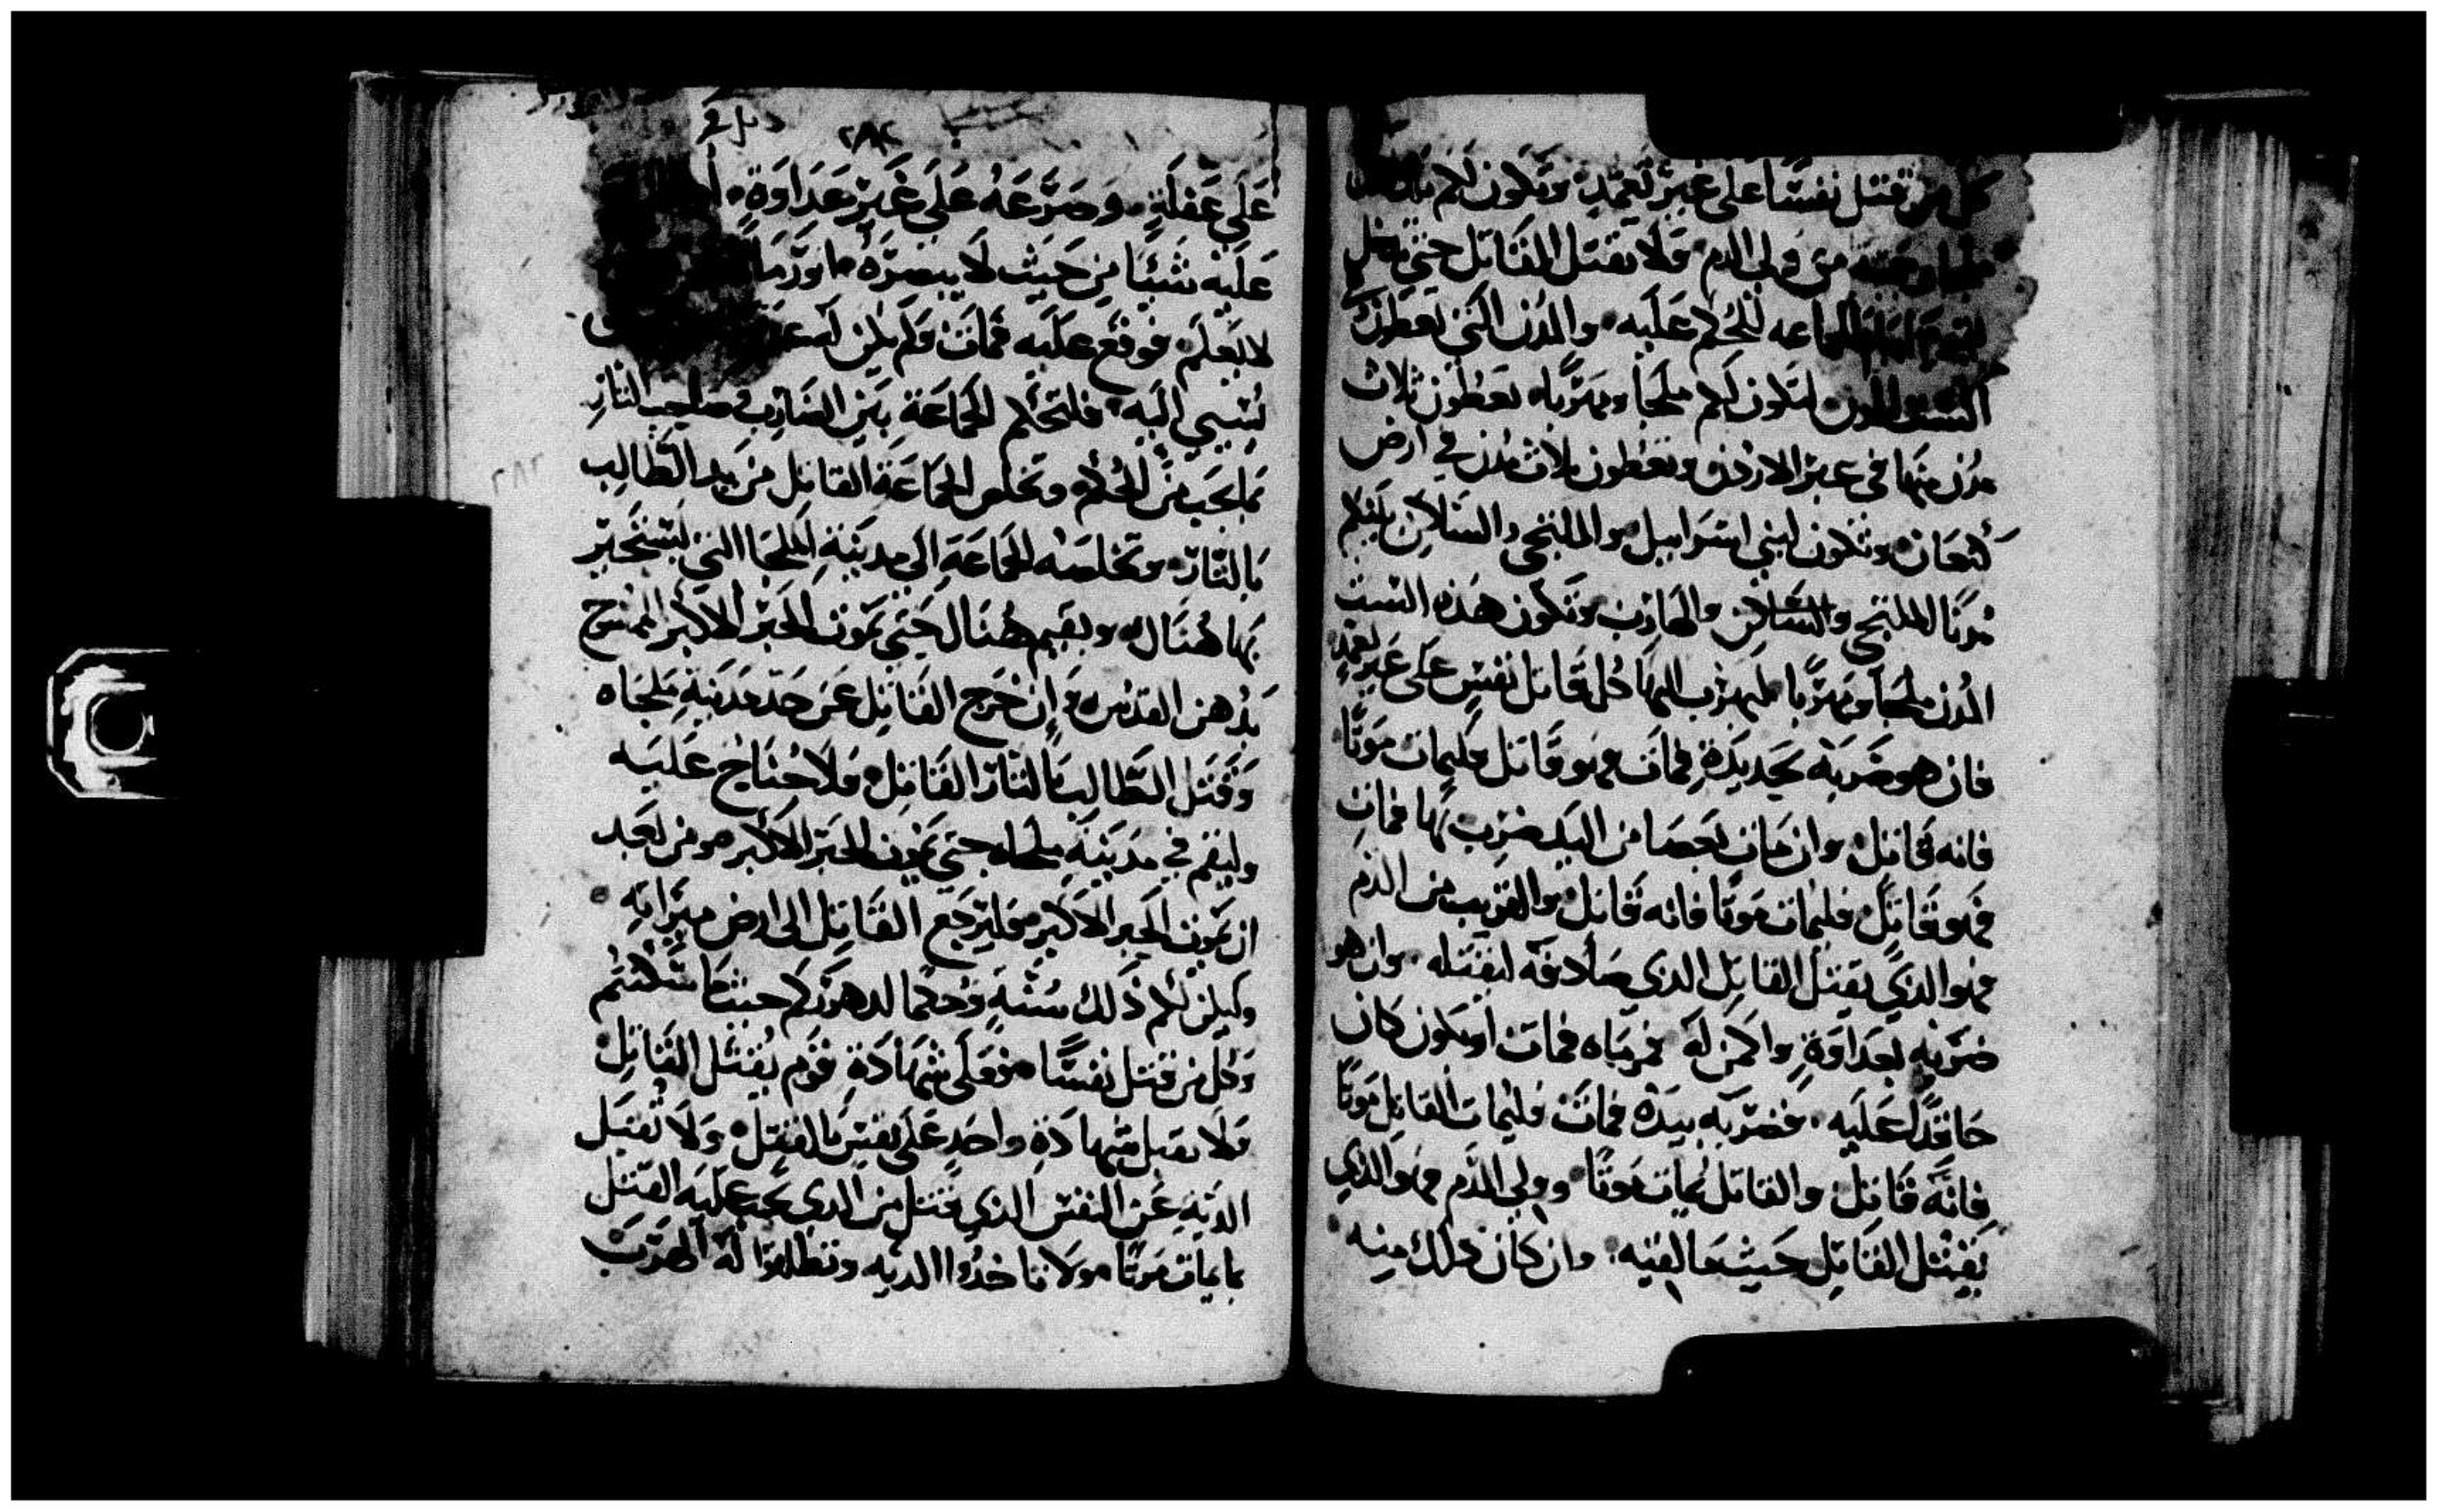 كل من قتل نفسًا على غير تعمد وتكون لكم
من ولي الدم ولا يقتل القاتل حتى
الجماعه للحكم عليه والمدن التي تعطون
الست المدن لتكون لكم ملجأ ومهربًا تعطون ثلاث
مدن منها في عبر الاردن وتعطون ثلاث مدن في ارض
كنعان وتكون لبني اسراييل والملتجي والساكن بينكم
مدنًا للملتجي والساكن والهارب وتكون هذه الست
المدن ملجأ ومهربًا ليهرب اليها كل قاتل نفس على غير تعمد
فان هو ضربه بحديدة فمات فهو قاتل فليمات موتًا
فانه قاتل وان مات بعصا من اليد ضرب بها فمات
فهو قاتل فليمات موتًا فانه قاتل والقريب من الدم
فهو الذي يقتل القاتل الذي صادفه ليقتله وان هو
ضربه بعداوة واكمن له فرماه فمات او يكون كان
حاقدًا عليه فضربه بيده فمات فليمات القاتل موتًا
فانه قاتل والقاتل يمات موتًا وولي الدم فهو الذي
يقتل القاتل حيث ما لقيه وان كان ذلك منه
٢٨٢
على غفلة وصرعه على غير عداوة
عليه شيئًا من حيث لا يبصره
لا يعلم فوقع عليه فمات ولم يكن له
يسي اليه فلتحكم الجماعة بين الضارب وصاحب الثار
بما يجب من الحكم وتخلص الجماعة القاتل من يد الطالب
بالثار وتخلصه الجماعة الى مدينة الملجا التي يستجير
بها هناك ويقيم هناك حتى يموت الحبر الاكبر الممسوح
بدهن القدس وان خرج القاتل عن حد مدينة ملجاه
وقتل الطالب بالثار القاتل فلا جناح عليه
وليقم في مدينة ملجاه حتى يموت الحبر الاكبر ومن بعد
ان يموت الحبر الاكبر فليرجع القاتل الى ارض ميراثه
وليكن لكم ذلك سنة وحكما لدهوركم حيثما سكنتم
وكل من قتل نفسًا فعلى شهادة قوم يقتل القاتل
ولا تقبل شهادة واحد على نفس بالقتل ولا تقبل
الدية عن النفس الذي قتل من الذي يجب عليه القتل
بل يمات موتًا ولا تاخذوا الديه وتطلقوا له الهرب
٢٨٢